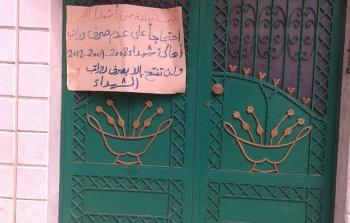 احتجاجاً على عدم صرف رواتب
أهالي شهداء 2008-2009-2012
ولن تفتح إلا بصرف رواتب
الشهداء